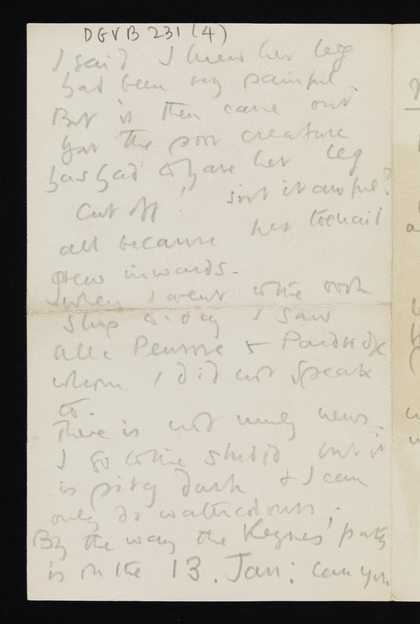 DGVB 231 (4)
I said I knew her leg
had been very painful
But it then came out
that the poor creature
has had to have her leg
cut off! isn't it awful?
all because her toenail
grew inwards.
When I went to the
shop today I saw
Alec Penrose &
whom I did not speak
to.
There is not much news.
I go to the studio but it
is pitch dark & I can
only do watercolours.
By the way the Keynes' party
is on the 13. Jan: can you